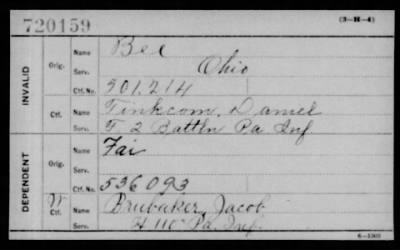 720159 (3-H-4)
INVALID
Orig. Name Bee
Serv. Ohio
Ctf. No. 301.214
Ctf. Name Tinkcom, Daniel
Serv. F 2 Battln Pa Inf
DEPENDENT
Orig. Name Fai
Serv.
Ctf. No. 536093
W Ctf. Name Brubaker, Jacob
Serv. H 110" Pa. Inf.
6-3303